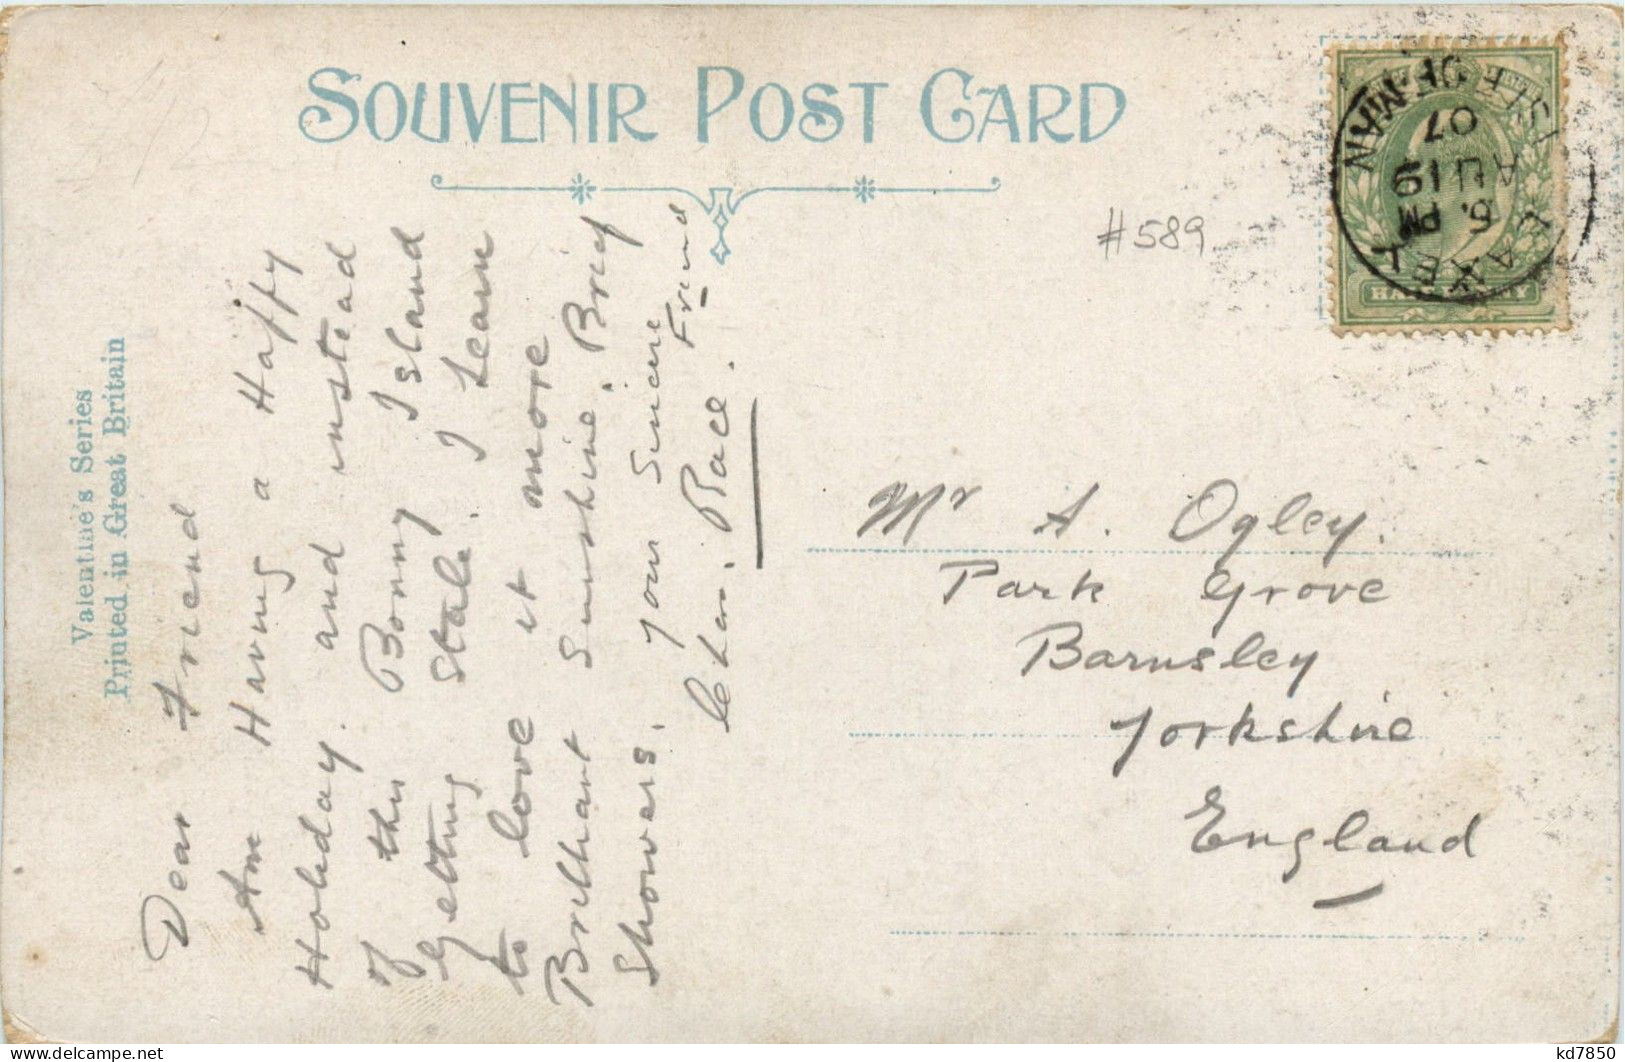 SOUVENIR POST CARD
Valentine's Series
Printed in Great Britain
Dear Friend
Am Having a Happy
Holiday. and instead
of this Bonny Island
Getting Stale. I Learn
to love it more
Brilliant Sunshine. Brief
Showers. Your Sincere Friend
Chas. Race.
#589
LAXEY
ISLE OF MAN
5. PM
AU 19
07
HALFPENNY
Mr A. Ogley.
Park Grove
Barnsley
Yorkshire
England
kd7850